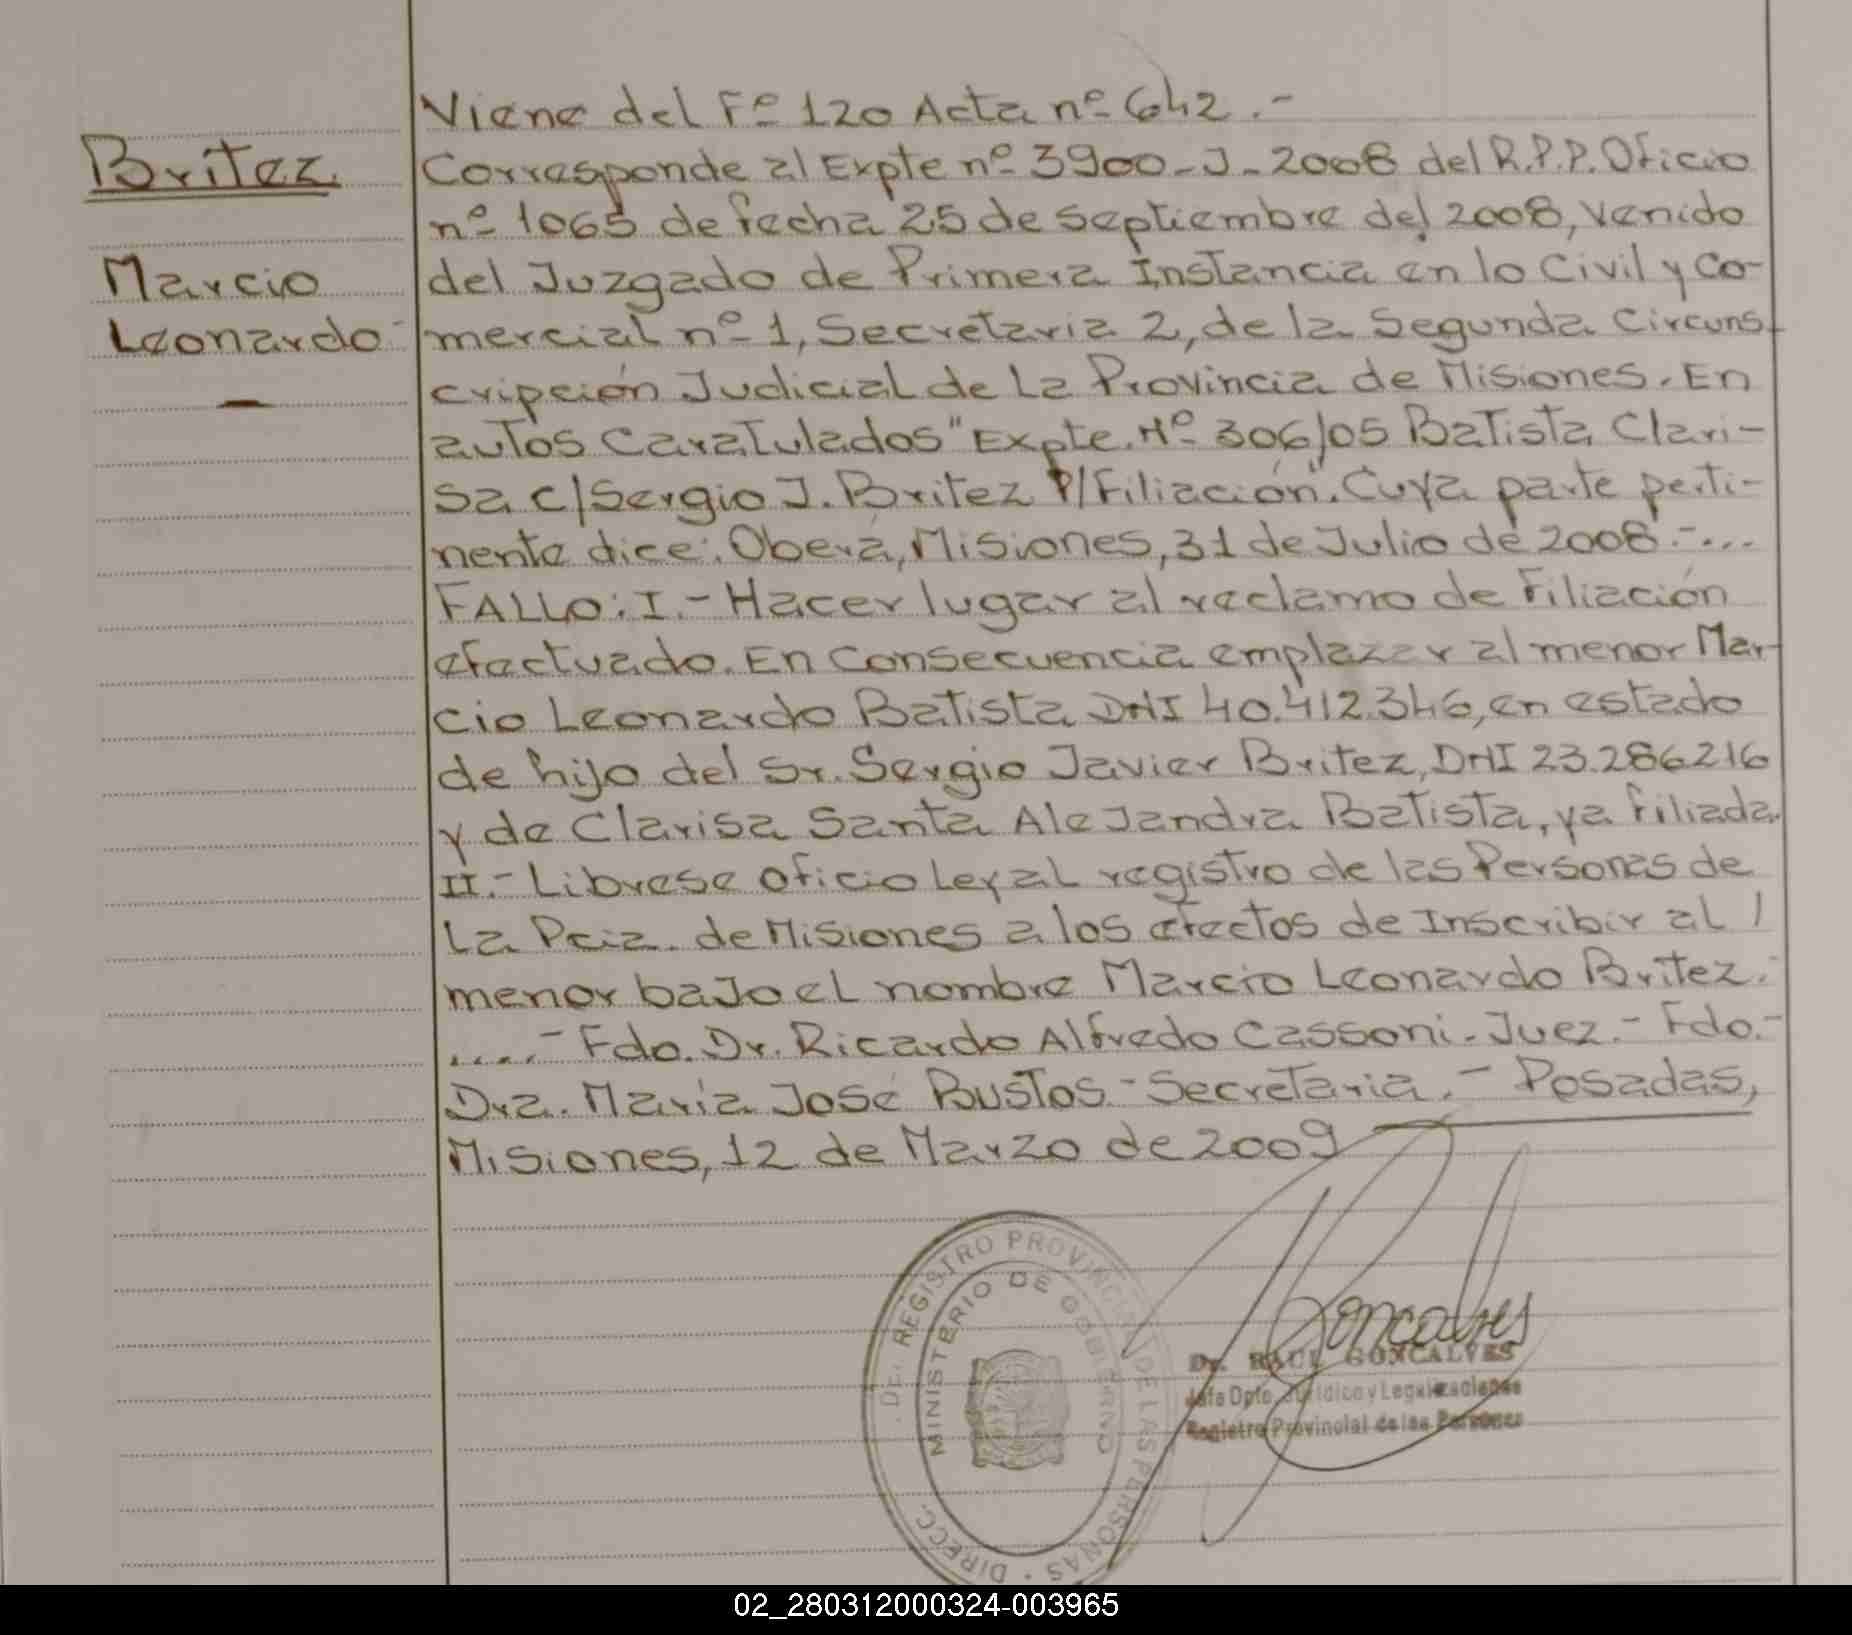 Viene del Fº 120 Acta nº 642.-
Britez
Corresponde al Expte nº 3900-J-2008 del R.P.P. Oficio
nº 1065 de fecha 25 de Septiembre del 2008, Venido
Marcio
del Juzgado de Primera Instancia en lo Civil y Co-
Leonardo-
mercial nº 1, Secretaria 2, de la Segunda Circuns-
cripción Judicial de La Provincia de Misiones. En
autos Caratulados "Expte. Nº 306/05 Batista Clari-
sa C/ Sergio J. Britez P/ Filiación". Cuya parte perti-
nente dice: Oberá, Misiones, 31 de Julio de 2008.-...
FALLO: I.- Hacer lugar al reclamo de Filiación
efectuado. En Consecuencia emplazar al menor Mar-
cio Leonardo Batista DNI 40.412.346, en estado
de hijo del Sr. Sergio Javier Britez, DNI 23.286.216
y de Clarisa Santa Alejandra Batista, ya filiada.
II.- Librese oficio Ley al registro de las Personas de
La Pcia. de Misiones a los efectos de Inscribir al /
menor bajo el nombre Marcio Leonardo Britez.-
....- Fdo. Dr. Ricardo Alfredo Cassoni - Juez.- Fdo.-
Dra. María José Bustos - Secretaria.- Posadas,
Misiones, 12 de Marzo de 2009
DIRECC. DEL REGISTRO PROVINCIAL DE LAS PERSONAS
MINISTERIO DE GOBIERNO
Goncalves
Dr. RAUL GONCALVES
Jefe Dpto. Jurídico y Legalizaciones
Registro Provincial de las Personas
02_280312000324-003965